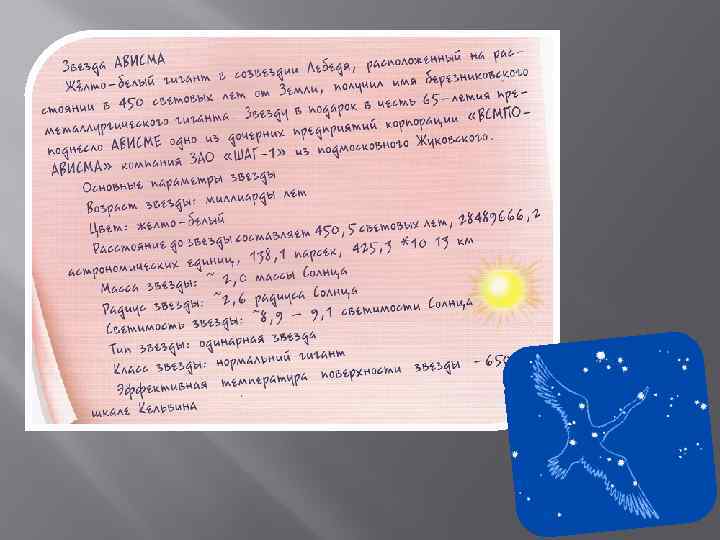 Звезда АВИСМА
Жёлто-белый гигант в созвездии Лебедя, расположенный на рас-
стоянии в 450 световых лет от Земли, получил имя березниковского
металлургического гиганта. Звезду в подарок в честь 65-летия пре-
поднесло АВИСМЕ одно из дочерних предприятий корпорации «ВСМПО-
АВИСМА» компания ЗАО «ШАГ-1» из подмосковного Жуковского.
Основные параметры звезды
Возраст звезды: миллиарды лет
Цвет: жёлто-белый
Расстояние до звезды составляет 450,5 световых лет, 28489666,2
астрономических единиц, 138,1 парсек, 425,3 *10 13 км
Масса звезды: ~ 2,0 массы Солнца
Радиус звезды: ~2,6 радиуса Солнца
Светимость звезды: ~8,9 – 9,1 светимости Солнца
Тип звезды: одинарная звезда
Класс звезды: нормальный гигант
Эффективная температура поверхности звезды -
шкале Кельвина